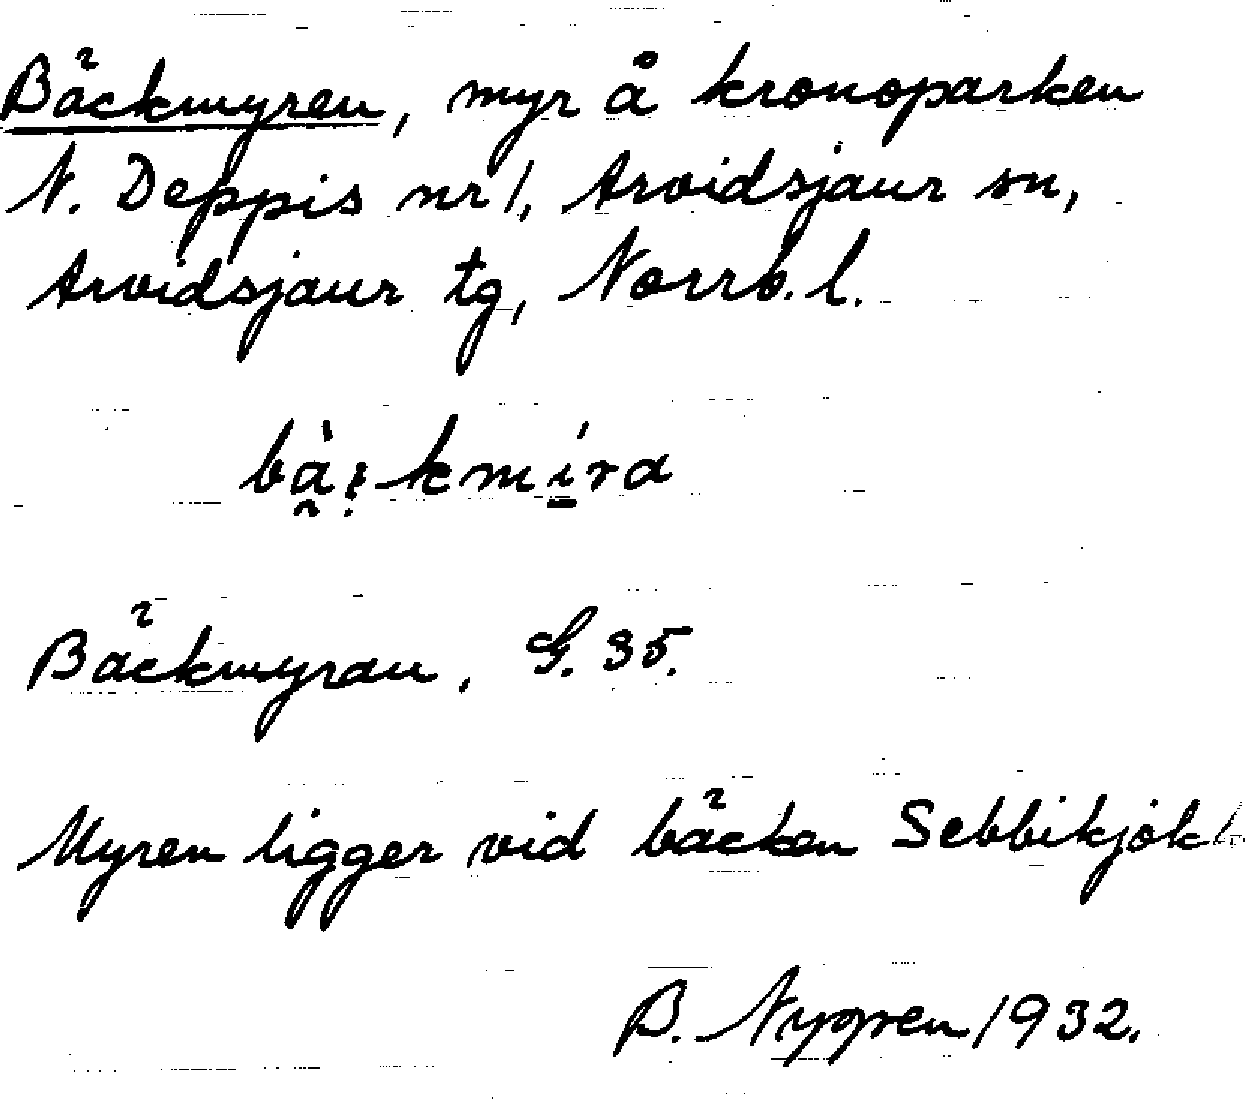 Bäckmyren, myr å kronoparken
N. Deppis nr 1, Arvidsjaur sn,
Arvidsjaur tg, Norrb. l.
Bäckmyran, G. 35.
Myren ligger vid bäcken Sebbikjokk
B. Nygren 1932.